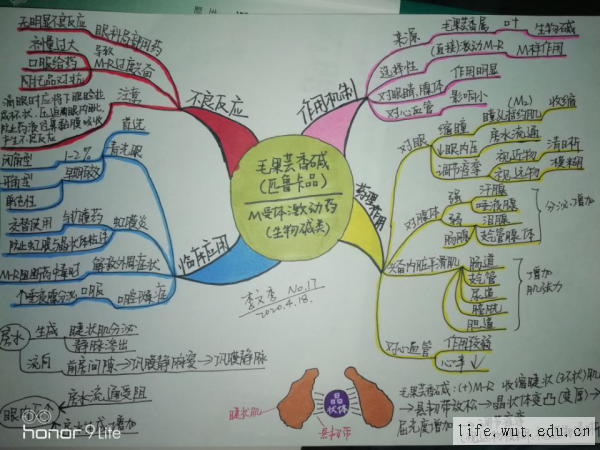 毛果芸香碱
(匹鲁卡品)
M受体激动药
(生物碱类)
不良反应
无明显不良反应
眼科局部用药
剂量过大
口服给药
导致
M-R过度兴奋
阿托品对抗
注意
滴眼时应将下眼睑拉
成杯状,压迫眼内眦,
防止药液经鼻黏膜吸收
产生不良反应
临床应用
青光眼
首选
1-2%
早期有效
闭角型
开角型
虹膜炎
与扩瞳药
交替使用
防止虹膜与晶状体粘连
解救外周症状
M-R阻断药中毒时
口腔干燥症
口服
↑唾液腺分泌
作用机制
来源
毛果芸香属
叶
生物碱
选择性
(直接)激动M-R
M样作用
对眼睛,腺体
作用明显
对心血管
影响小
药理作用
对眼
缩瞳
(M₂)
收缩
↓眼内压
房水流通
调节痉挛
视近物
清晰
视远物
模糊
对腺体
强
汗腺
唾液腺
弱
泪腺
胃腺
支气管腺体
分泌增加
兴奋内脏平滑肌
肠道
支气管
尿道
膀胱
胆道
增加
肌张力
对心血管
作用较弱
心率↓
No.17
2020.4.18.
房水
生成
睫状肌分泌
静脉渗出
流向
前房间隙→巩膜静脉窦→巩膜静脉
房水流通受阻
睫状肌
晶
状体
悬韧带
毛果芸香碱:(+)M-R 收缩睫状(环状)肌
→悬韧带放松→晶状体变凸(变厚)→
屈光度增加
honor 9 Life
life.wut.edu.cn